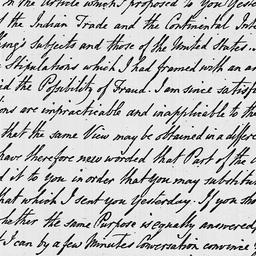 in the Article which I proposed to You Yester
the Indian Trade and the Continental Int
King's Subjects and those of the United States.
Stipulations which I had framed with an a
the Possibility of Fraud. I am since satisf
ons are impracticable and inapplicable to the
that the same View may be obtained in a differe
have therefore new worded that Part of the
d it to you in order that you may substitu
that which I sent you Yesterday. If you sho
whether the same Purpose is equally answered,
I can by a few Minutes Conversation convince